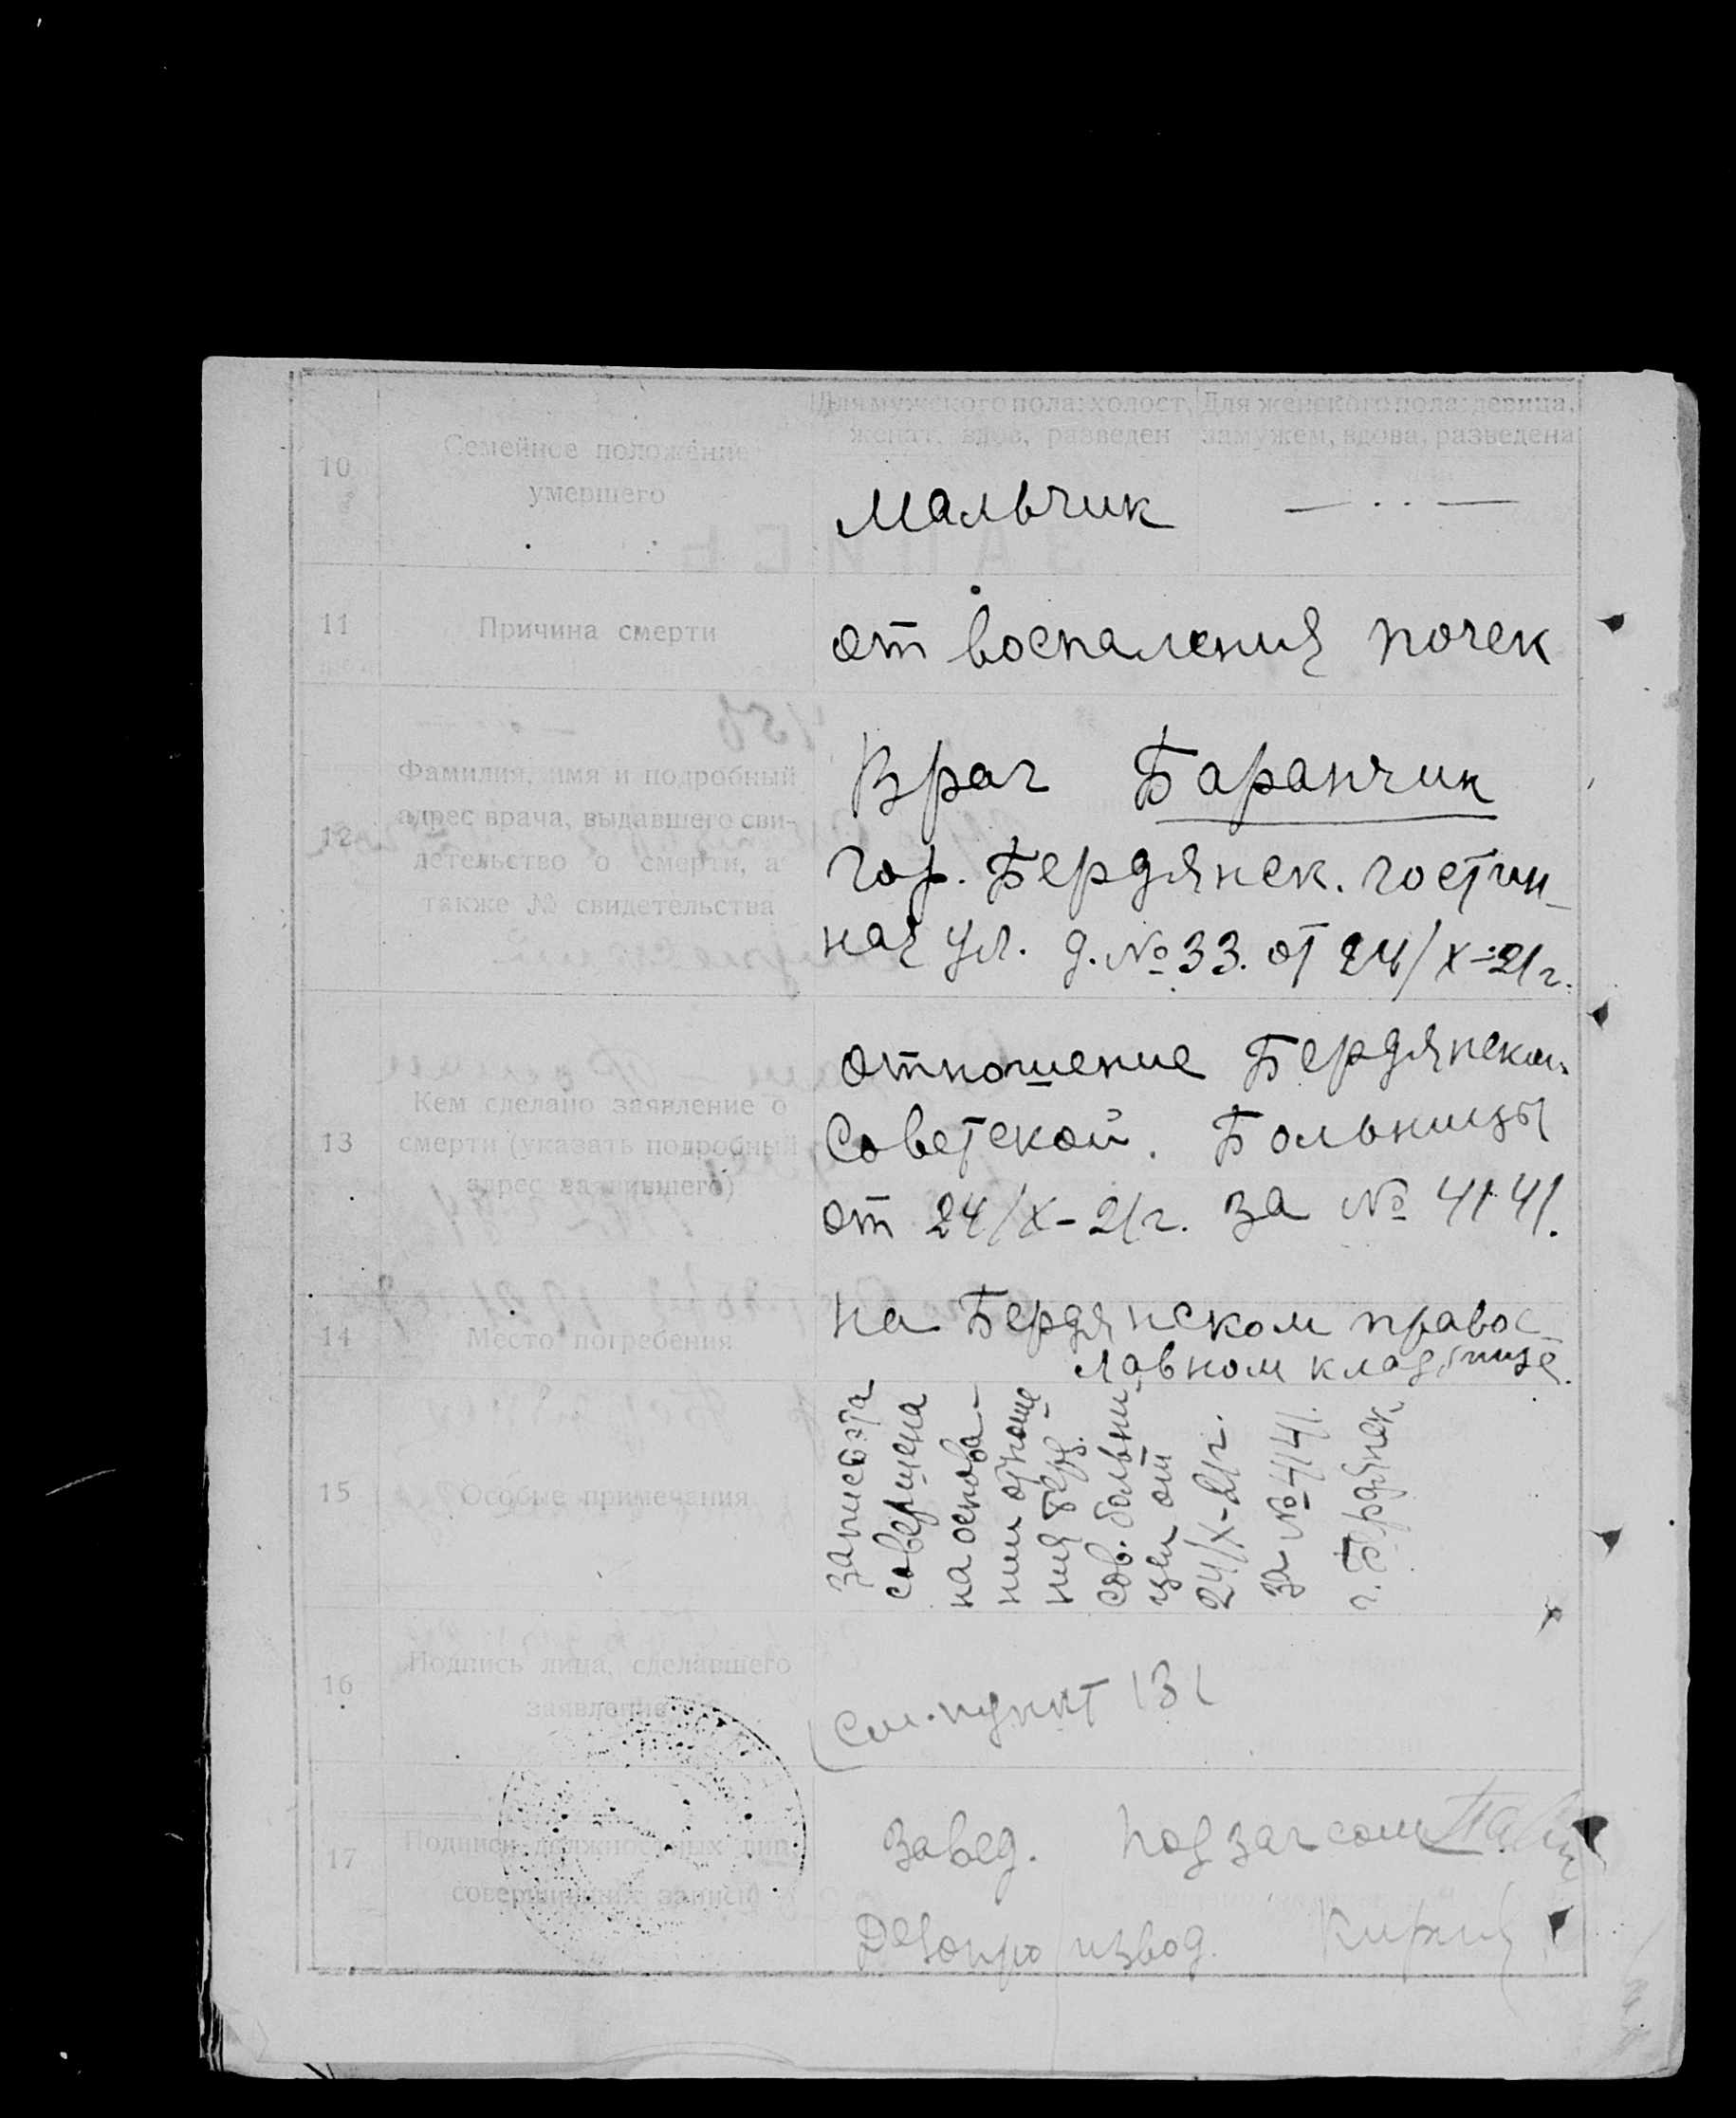 Для мужского пола: холост, женат, вдов, разведен
Для женского пола: девица, замужем, вдова, разведена
10
Семейное положение
умершего
Мальчик
— . . —
11
Причина смерти
от воспаления почек
12
Фамилия, имя и подробный
адрес врача, выдавшего сви-
детельство о смерти, а
также № свидетельства
Врач Баранчик
гор. Бердянск. гостин-
ная ул. д. № 33. от 24/X-21г.
13
Кем сделано заявление о
смерти (указать подробный
адрес заявившего)
отношение Бердянской
Советской. Больницы
от 24/X-21г. за № 4141.
14
Место погребения
на Бердянском правос-
лавном кладбище.
15
Особые примечания
запись эта
совершена
на основа-
нии отноше
ния Берд.
сов. больни-
цы от
24/X-21г.
за № 4141.
г. Бердянск
16
Подпись лица, сделавшего
заявление
(См. пункт 13)
17
Подписи должностных лиц,
совершивших запись
Завед. подзагсом
Делопроизвод.